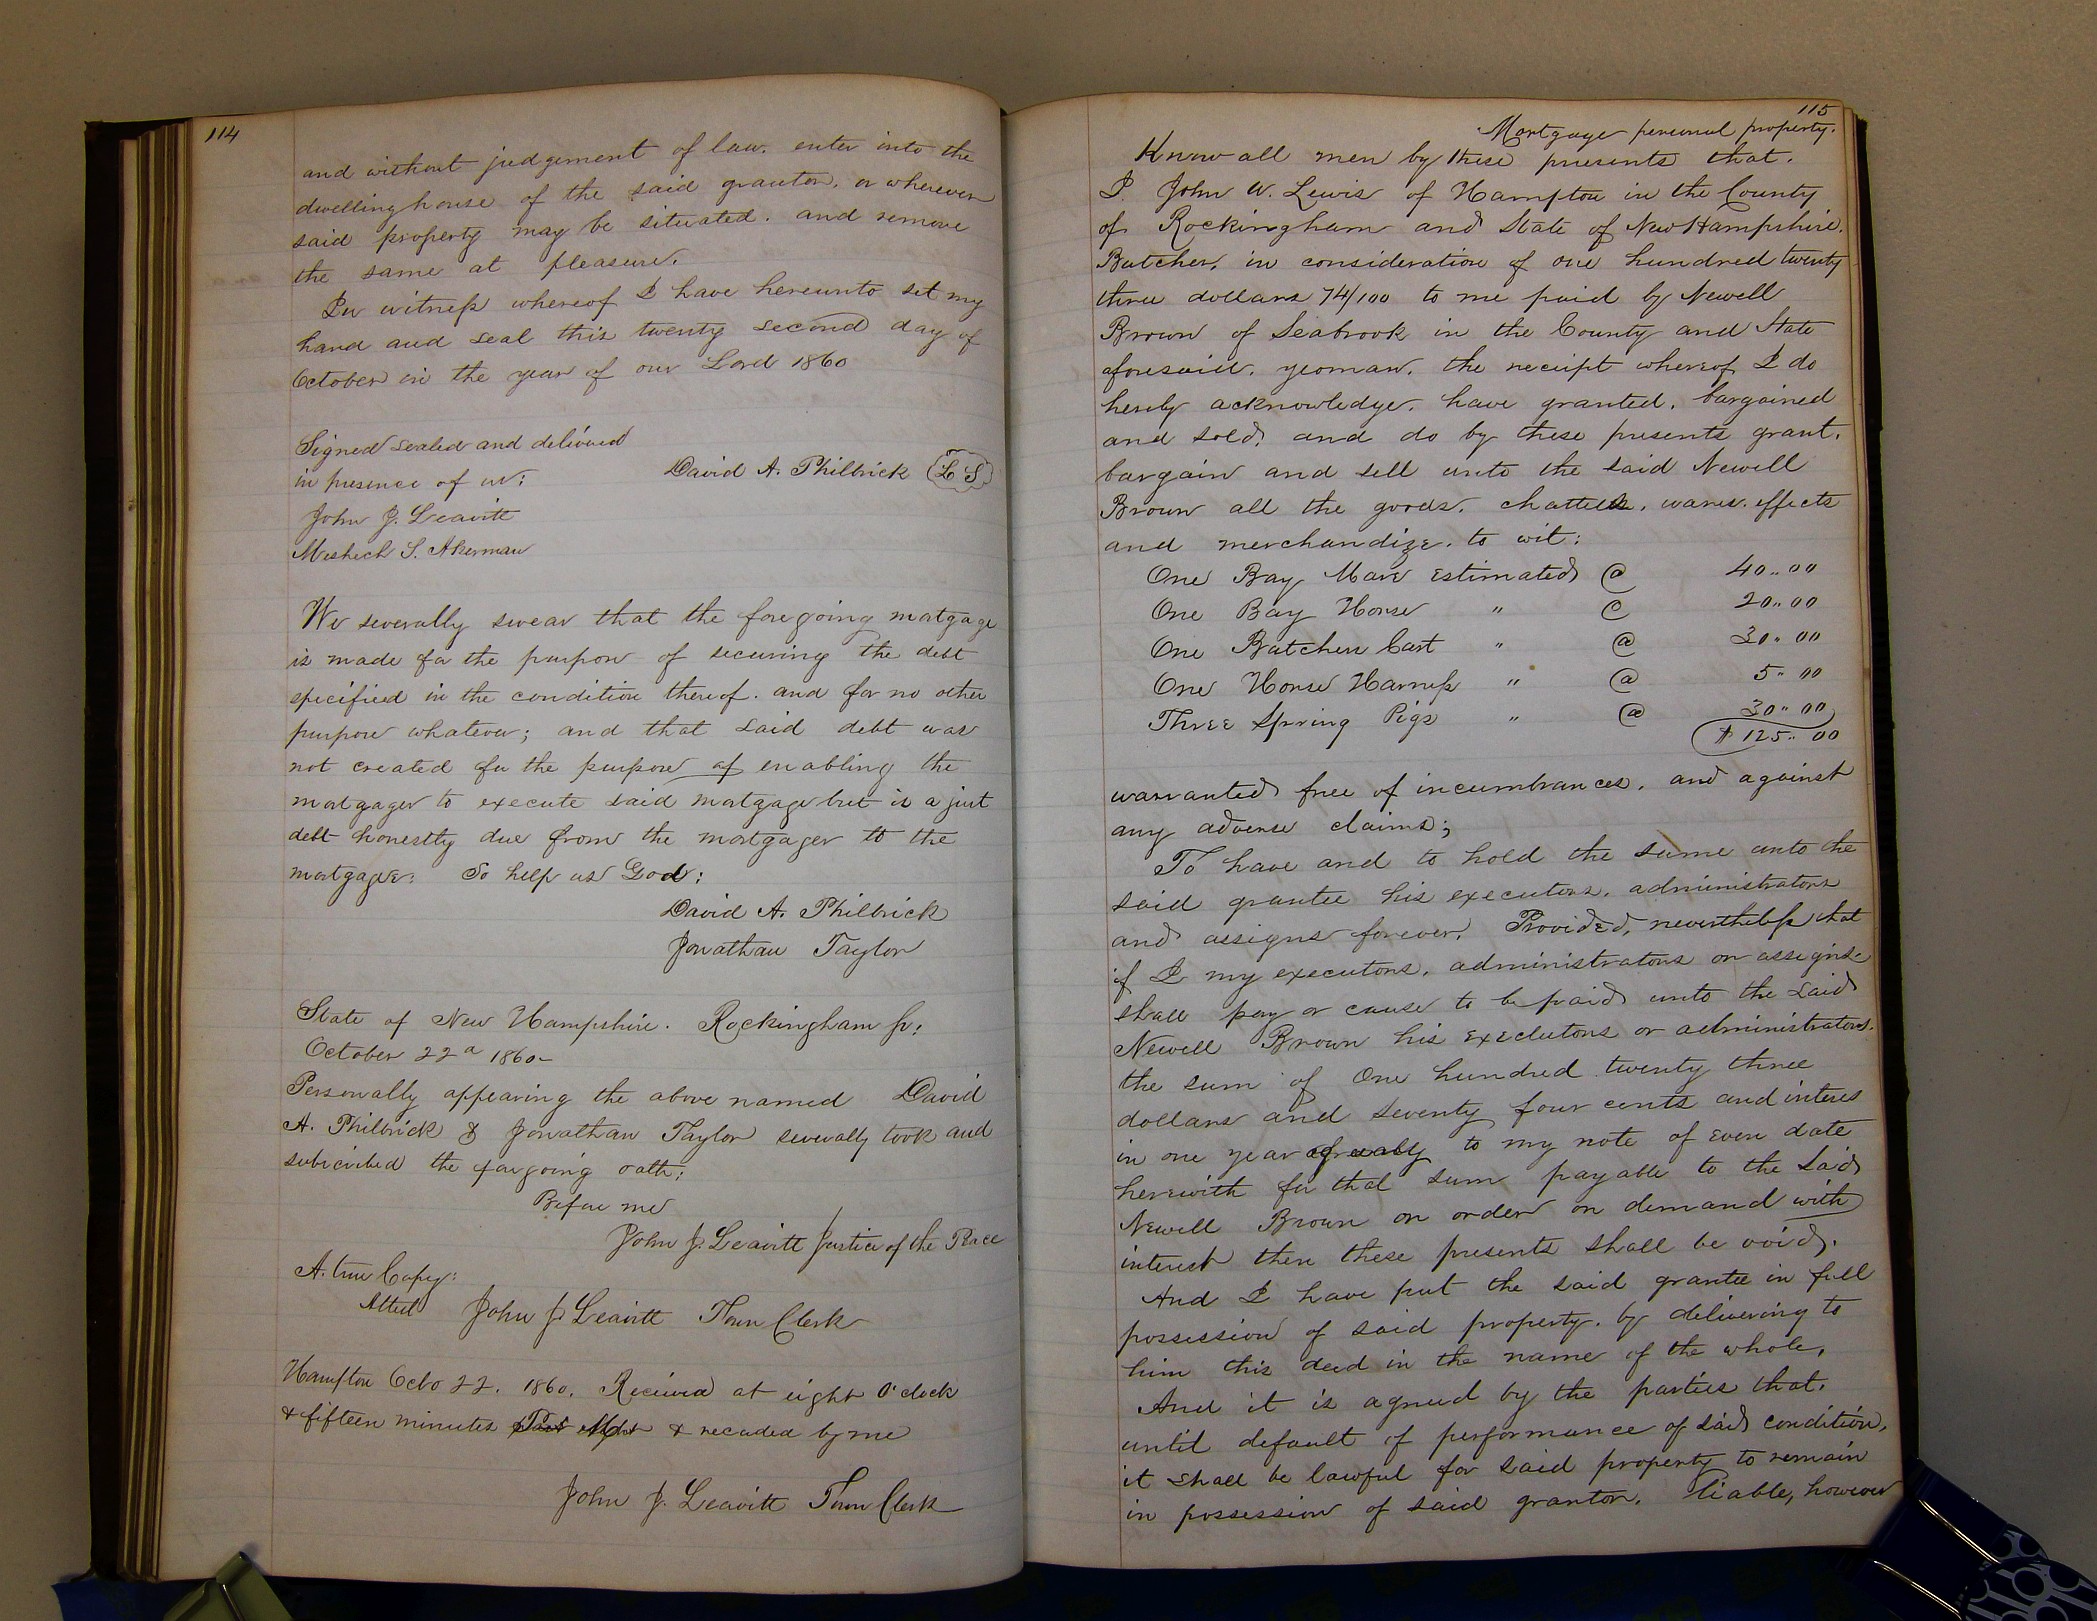 114
and without judgement of law. enter into the
dwelling house of the said grantor. or wherever
said property may be situated. and remove
the same at pleasure.
In witness whereof I have hereunto set my
hand and seal this twenty second day of
October in the year of our Lord 1860
Signed sealed and delivered
in presence of us: David A. Philbrick (L S)
John J. Leavitt
Meshech S. Akerman
We severally swear that the foregoing mortgage
is made for the purpose of securing the debt
specified in the condition thereof. and for no other
purpose whatever; and that said debt was
not created for the purpose of enabling the
mortgager to execute said mortgage but is a just
debt honestly due from the mortgager to the
mortgagee: So help us God:
David A. Philbrick
Jonathan Taylor
State of New Hampshire. Rockingham ss:
October 22d 1860–
Personally appearing the above named David
A. Philbrick & Jonathan Taylor severally took and
subscribed the forgoing oath:
Before me
John J. Leavitt Justice of the Peace
A. true Copy:
Attest John J. Leavitt Town Clerk
Hampton Octo 22. 1860. Received at eight O'clock
& fifteen minutes & recorded by me
John J. Leavitt Town Clerk
115
Mortgage personal property.
Know all men by these presents that.
I. John W. Lewis of Hampton in the County
of Rockingham and State of New Hampshire.
Butcher, in consideration of one hundred twenty
three dollars 74/100 to me paid by Newell
Brown of Seabrook in the County and State
aforesaid. yeoman. the receipt whereof I do
herely acknowledge. have granted. bargained
and sold. and do by these presents grant.
bargain and sell unto the said Newell
Brown all the goods. chattels. wares. effects
and merchandize. to wit:
One Bay Mare Estimated @ 40..00
One Bay Horse " @ 20..00
One Butchers Cart " @ 30..00
One Horse Harness " @ 5..00
Three Spring Pigs " @ 30..00
$ 125..00
warranted free of incumbrances. and against
any adverse claims;
To have and to hold the same unto the
said grantee his executors. administrators
and assigns forever. Provided, nevertheless that
if I my executors. administrators or assigns
shall pay or cause to be paid unto the said
Newell Brown his executors or administrators.
the sum of One hundred twenty three
dollars and seventy four cents and interes
in one year agreeably to my note of even date
herewith for that sum payable to the said
Newell Brown or order on demand with
interest then these presents shall be void.
And I have put the said grantee in full
possession of said property. by delivering to
him this deed in the name of the whole.
And it is agreed by the parties that.
until default of performance of said condition.
it shall be lawful for said property to remain
in possession of said grantor. liable, however